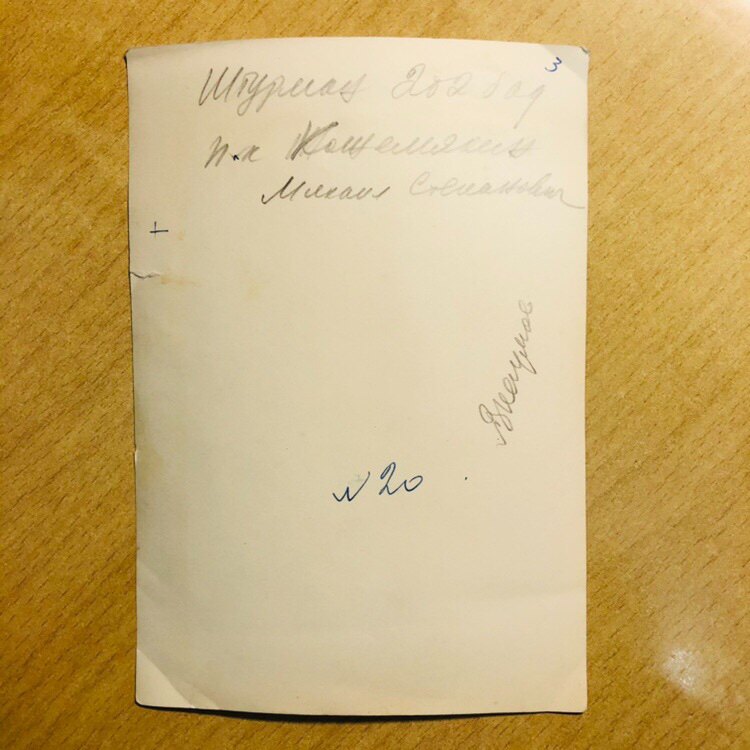 3
Штурман 202 бад
п-к Кожемякин
Михаил Степанович
+
N 20